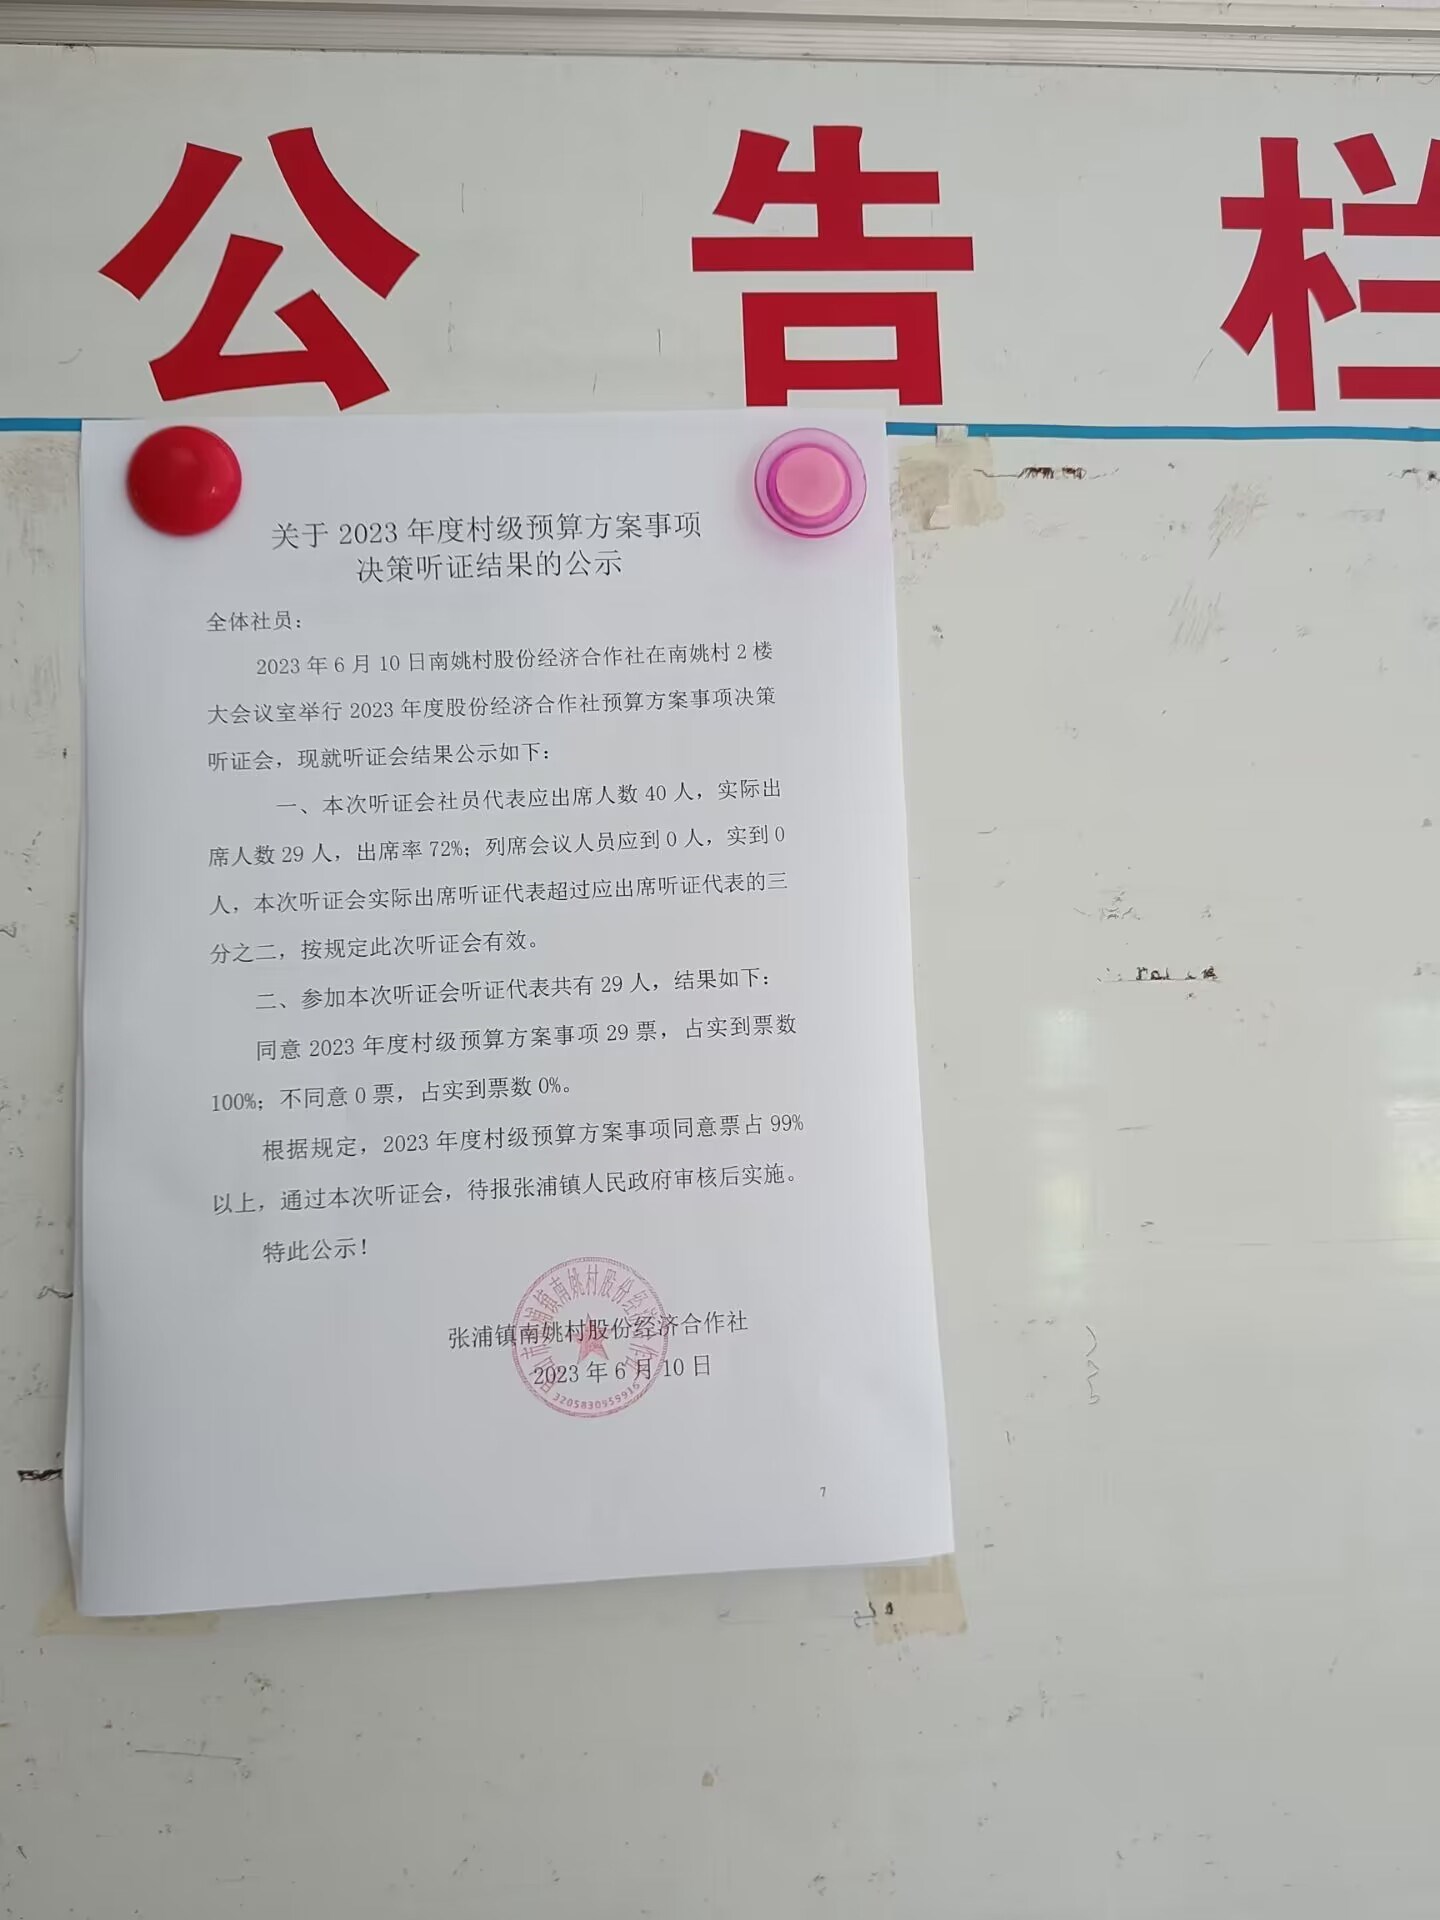 公告栏
关于 2023 年度村级预算方案事项
决策听证结果的公示
全体社员：
2023 年 6 月 10 日南姚村股份经济合作社在南姚村 2 楼
大会议室举行 2023 年度股份经济合作社预算方案事项决策
听证会，现就听证会结果公示如下：
一、本次听证会社员代表应出席人数 40 人，实际出
席人数 29 人，出席率 72%；列席会议人员应到 0 人，实到 0
人，本次听证会实际出席听证代表超过应出席听证代表的三
分之二，按规定此次听证会有效。
二、参加本次听证会听证代表共有 29 人，结果如下：
同意 2023 年度村级预算方案事项 29 票，占实到票数
100%；不同意 0 票，占实到票数 0%。
根据规定，2023 年度村级预算方案事项同意票占 99%
以上，通过本次听证会，待报张浦镇人民政府审核后实施。
特此公示！
张浦镇南姚村股份经济合作社
2023 年 6 月 10 日
市张浦镇南姚村股份经济合作社
3205830959916
7